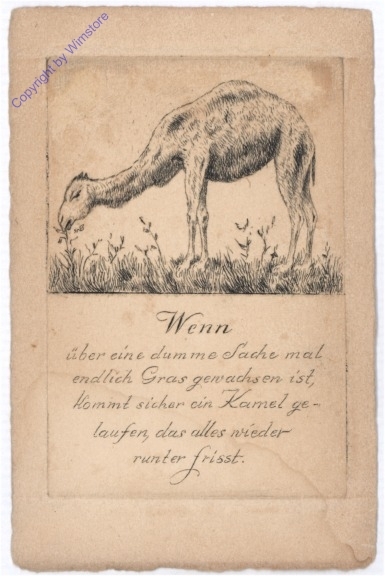 Copyright by Wimstore
Wenn
über eine dumme Sache mal
endlich Gras gewachsen ist,
kommt sicher ein Kamel ge-
laufen, das alles wieder
runter frisst.